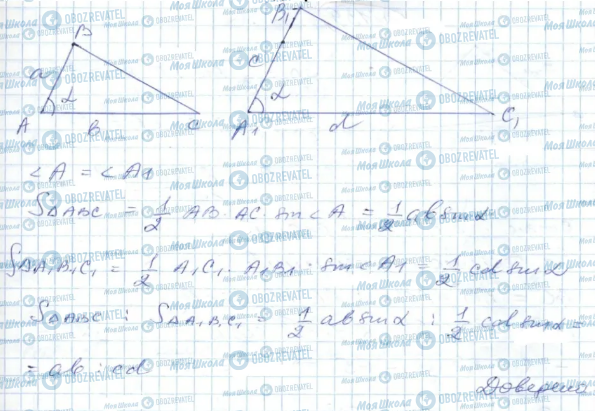 B
a
α
A
B
C
B₁
c
α
A₁
d
C₁
<A = <A₁
SΔABC = 1/2 AB · AC · sin <A = 1/2 ab sin α
SΔA₁B₁C₁ = 1/2 A₁C₁ · A₁B₁ · sin <A₁ = 1/2 cd sin α
SΔABC : SΔA₁B₁C₁ = 1/2 ab sin α : 1/2 cd sin α =
= ab : cd
Доведено
Моя Школа
OBOZREVATEL